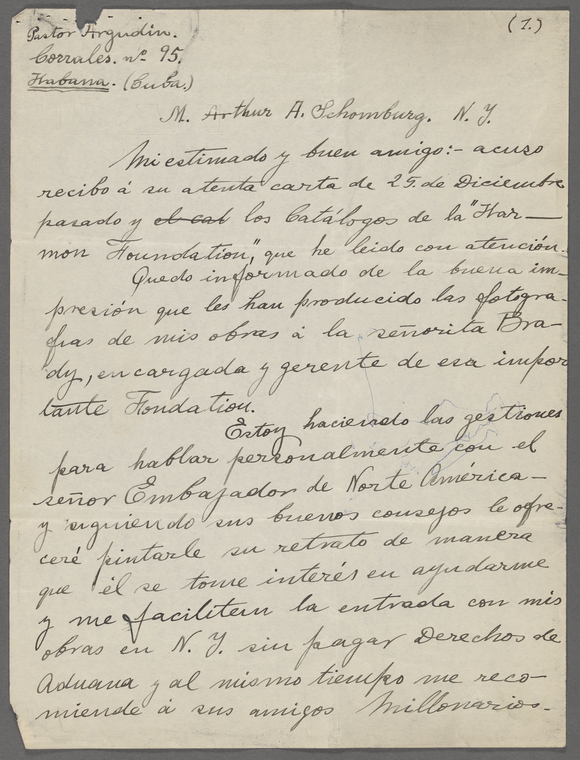 (1.)
Pastor Argudin.
Corrales. nº 95.
Habana. (Cuba.)
M. Arthur A. Schomburg. N. Y.
Mi estimado y buen amigo:- acuso
recibo á su atenta carta de 25. de Diciembre
pasado y el cat los Catálogos de la "Har-
mon Foundation", que he leido con atención.
Quedo informado de la buena im-
presión que les han producido las fotogra-
fias de mis obras á la señorita Bra-
dy, encargada y gerente de esa impor
tante Fondation.
Estoy haciendo las gestiones
para hablar personalmente con el
señor Embajador de Norte América-
y siguiendo sus buenos consejos le ofre-
ceré pintarle su retrato de manera
que él se tome interés en ayudarme
y me faciliten la entrada con mis
obras en N. Y. sin pagar Derechos de
Aduana y al mismo tiempo me reco-
miende á sus amigos Millonarios-